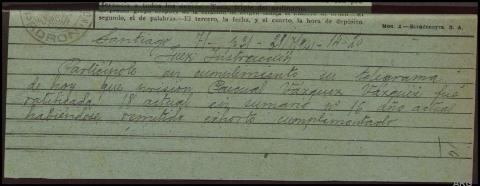 segundo, el de palabras.—El tercero, la fecha, y el cuarto, la hora de depósito.
Santiago 71 - 231 - 21 - 14-20
Juez Instrucción
Participole en cumplimiento su telegrama
de hoy que prision Pascual Vázquez Vazquez fué
ratificada 18 actual en sumario nº 16 año actual
habiendose remitido exhorto cumplimentado